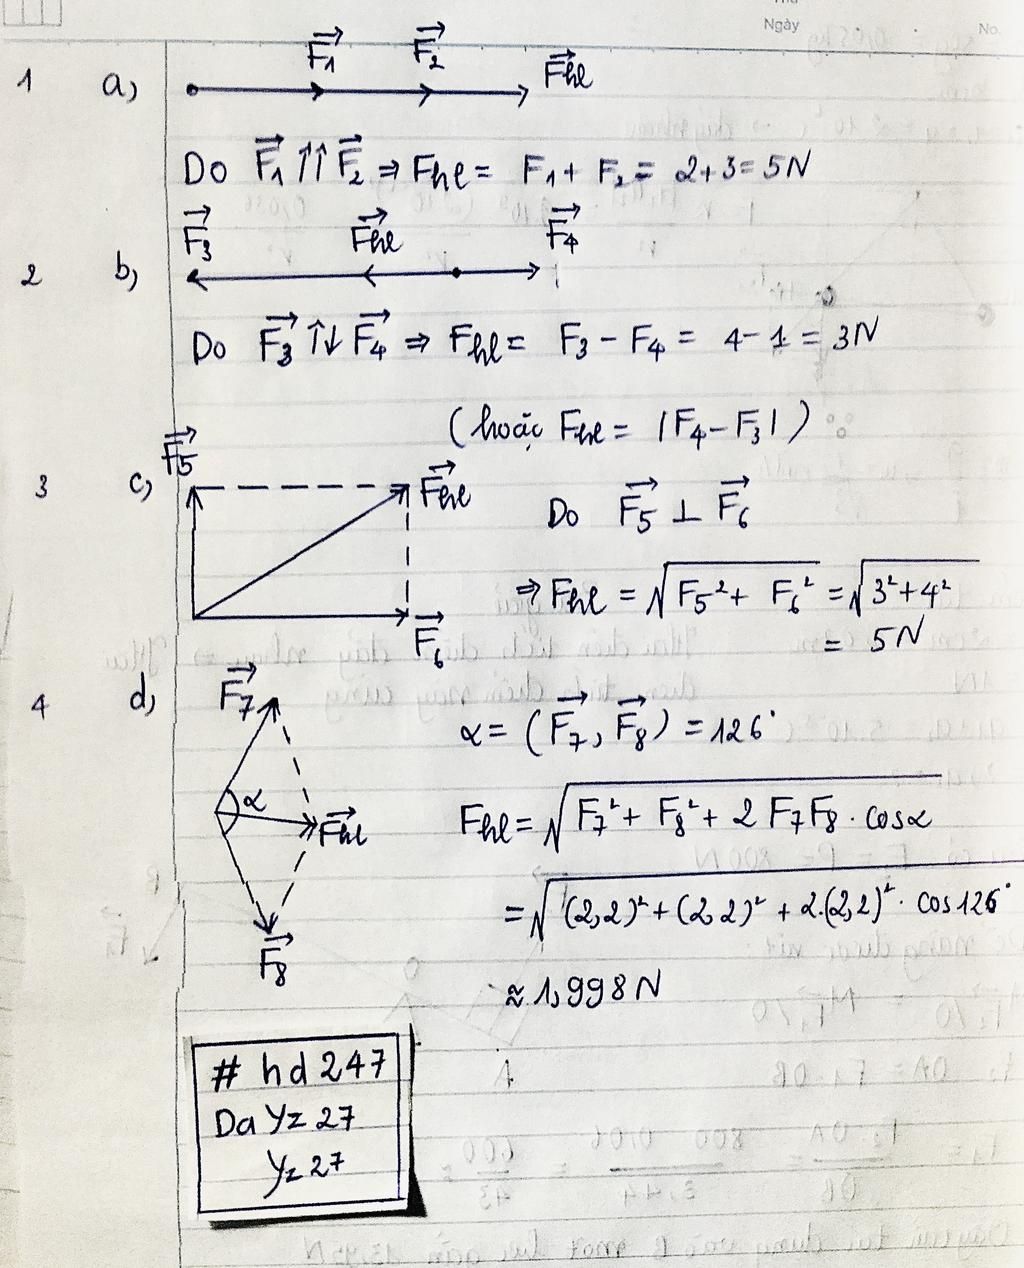 Ngày
No.
1 a) F₁→ F₂→ Fhl→
Do F₁→ ↑↑ F₂→ ⇒ Fhl = F₁ + F₂ = 2+3 = 5N
F₃→ Fhl→ F₄→
2 b)
Do F₃→ ↑↓ F₄→ ⇒ Fhl = F₃ − F₄ = 4 − 1 = 3N
(hoặc Fhl = |F₄ − F₃|)
F₅→
3 c) Fhl→
Do F₅→ ⊥ F₆→
⇒ Fhl = √(F₅² + F₆²) = √(3² + 4²)
F₆→ = 5N
4 d) F₇→
α = (F₇→, F₈→) = 126°
α Fhl→
Fhl = √(F₇² + F₈² + 2F₇F₈ · cosα)
= √((2,2)² + (2,2)² + 2.(2,2)² · cos126°)
F₈→
≈ 1,998N
# hd247
DaYz27
Yz27